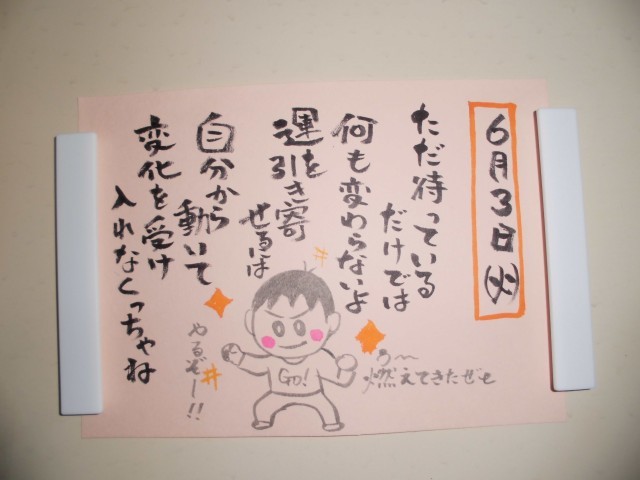 6月3日(火)
ただ待っている
だけでは
何も変わらないよ
運を
引き寄
せるは
自分から
動いて
変化を受け
入れなくっちゃね
やるぞー!!
GO!
う〜
燃えてきたぜぃ